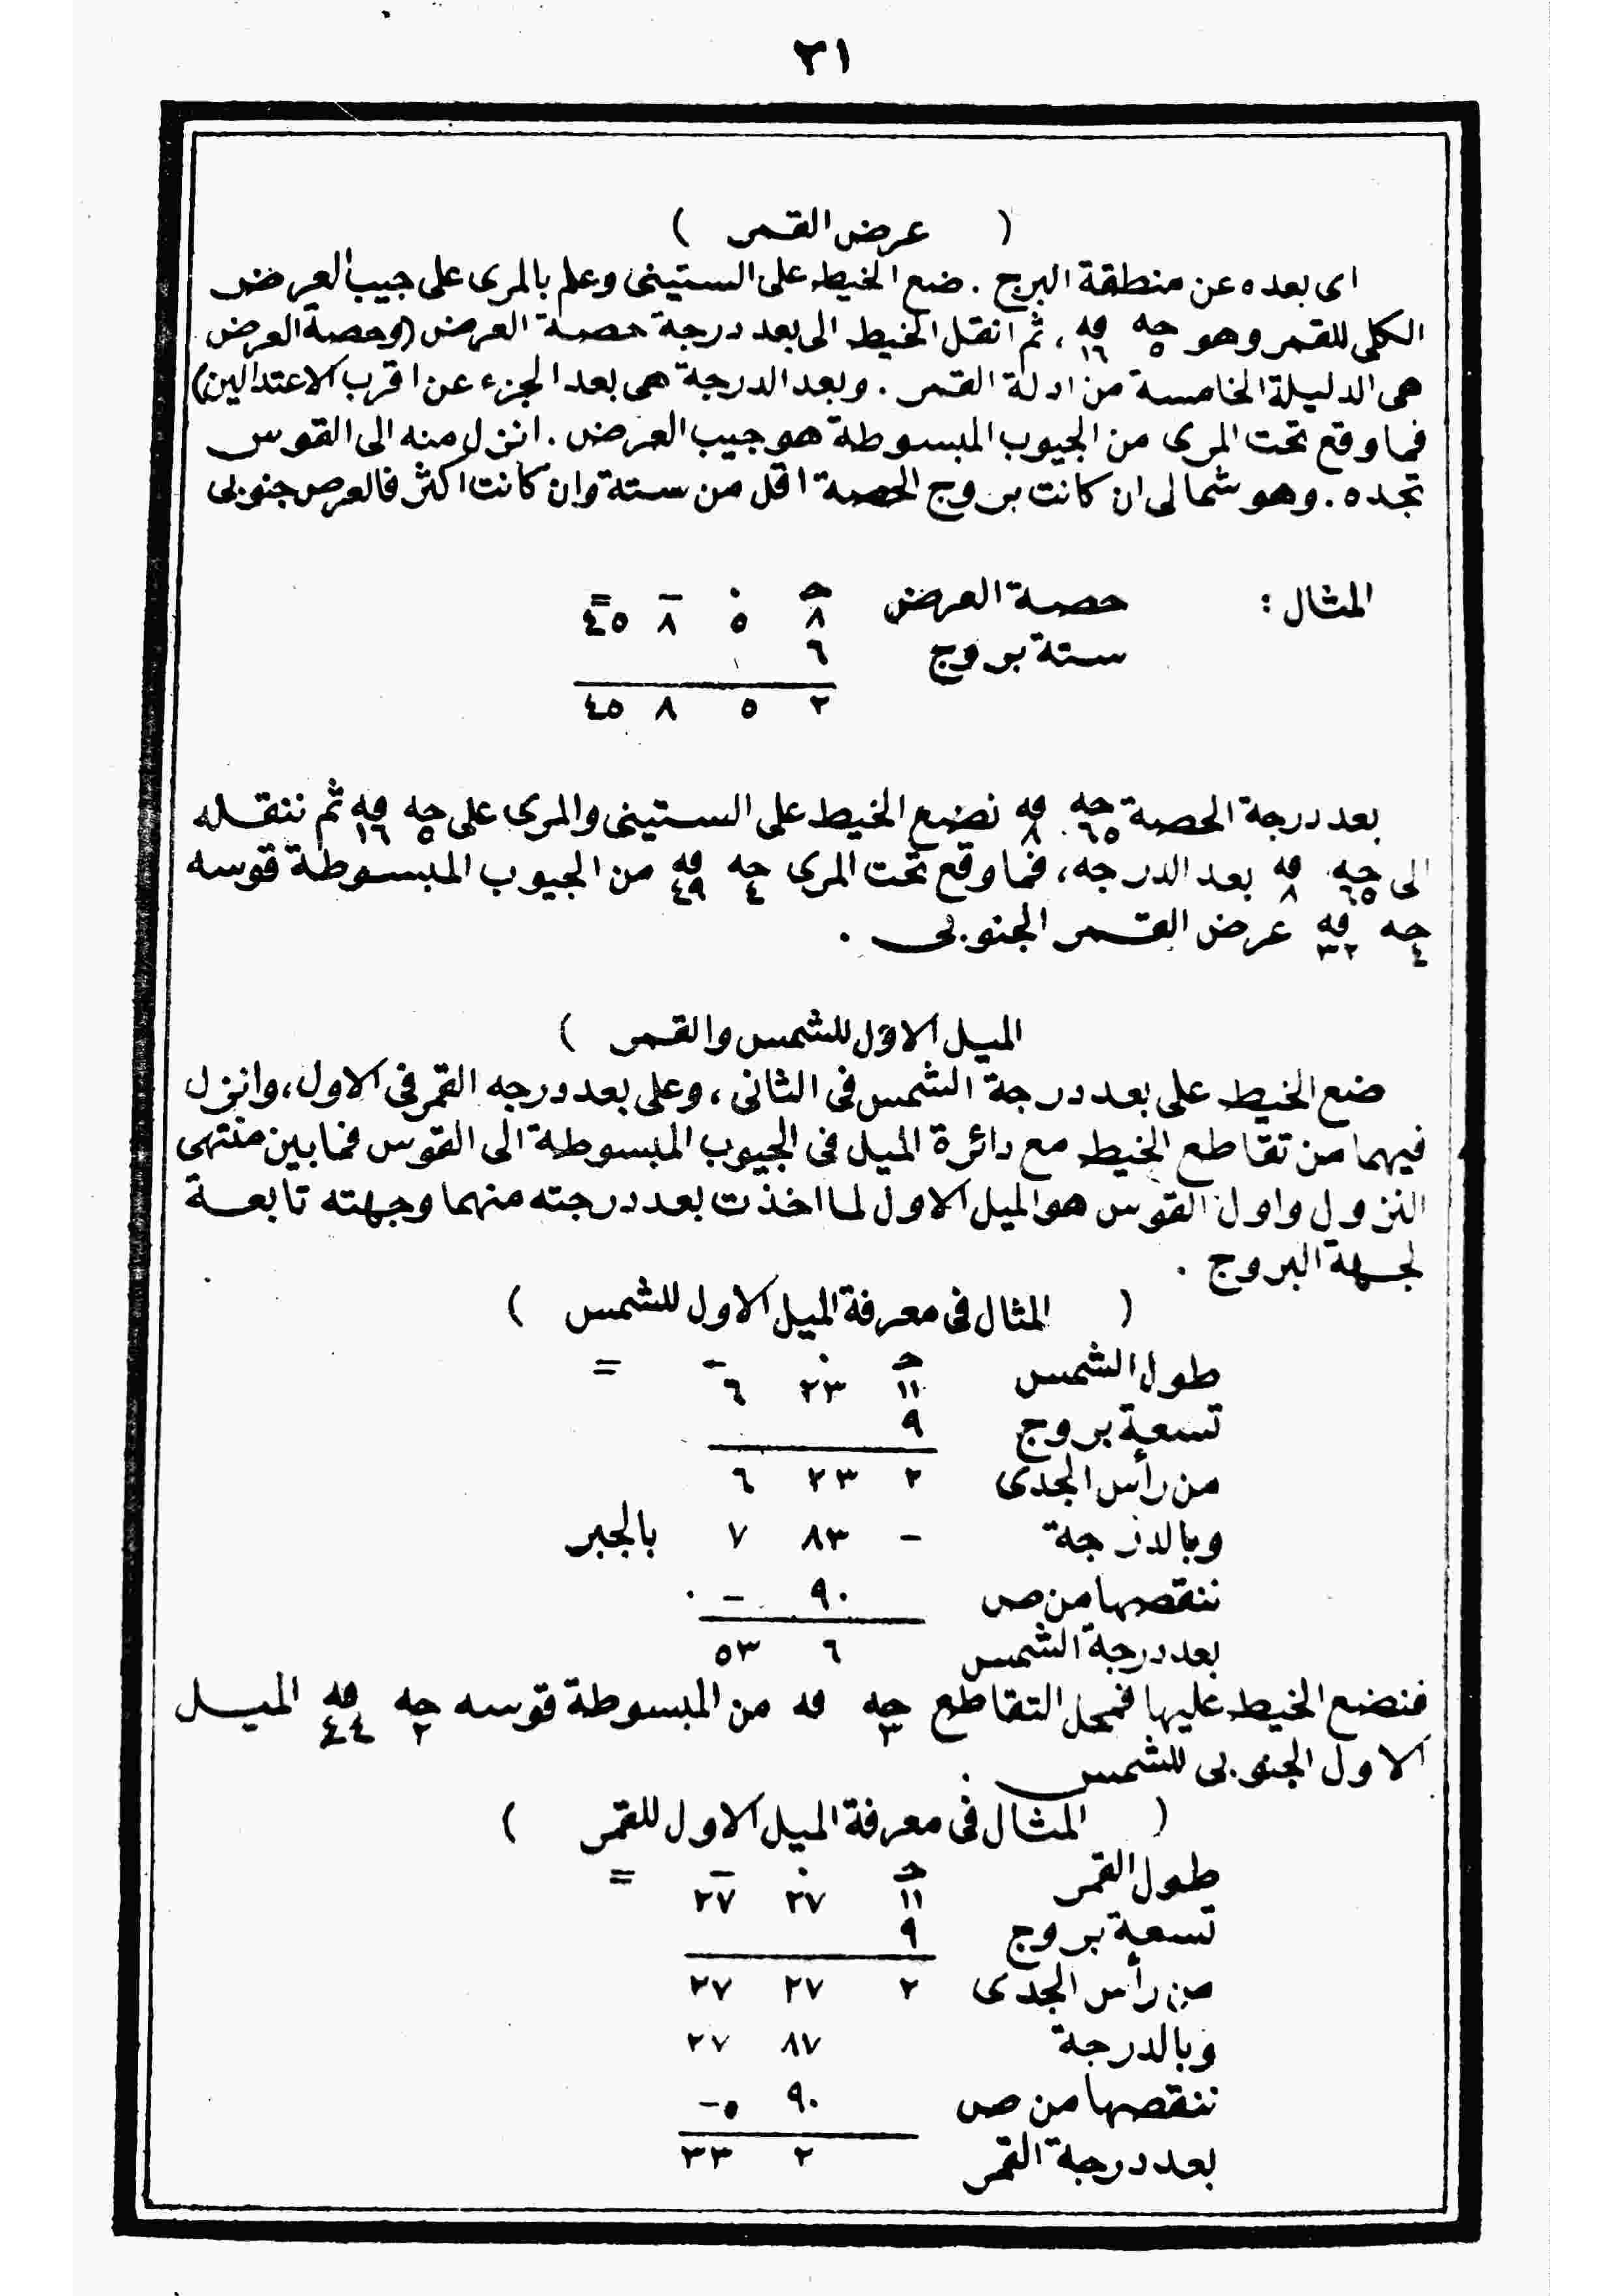 ٢١
( عرض القمر )
اى بعده عن منطقة البرج . ضع الخيط على الستينى وعلم بالمرى على جيب العرض
الكلى للقمر وهو جه ٥ قه ١٦ ، ثم انقل الخيط الى بعد درجة حصة العرض (وحصة العرض
هى الدليلة الخامسة من ادلة القمر . وبعد الدرجة هى بعد الجزء عن اقرب الاعتدالين)
فما وقع تحت المرى من الجيوب المبسوطة هو جيب العرض . انزل منه الى القوس
تجده . وهو شمالى ان كانت بروج الحصة اقل من ستة وان كانت اكثر فالعرض جنوبى
المثال :
حصة العرض ٨ ٥ ٨ ٤٥
ستة بروج ٦
٢ ٥ ٨ ٤٥
بعد درجة الحصة جه ٦٥ قه ٨ نضع الخيط على الستينى والمرى على جه ٥ قه ١٦ ثم ننقله
الى جه ٦٥ قه ٨ بعد الدرجه ، فما وقع تحت المرى جه ٤ قه ٤٩ من الجيوب المبسوطة قوسه
جه ٤ قه ٣٢ عرض القمر الجنوبى .
الميل الاول للشمس والقمر )
ضع الخيط على بعد درجة الشمس فى الثانى ، وعلى بعد درجه القمر فى الاول ، وانزل
فيهما من تقاطع الخيط مع دائرة الميل فى الجيوب المبسوطة الى القوس فما بين منتهى
النزول واول القوس هو الميل الاول لما اخذت بعد درجته منهما وجهته تابعة
لجهة البروج .
( المثال فى معرفة الميل الاول للشمس )
طول الشمس ١١ ٢٣ ٦
تسعة بروج ٩
من رأس الجدى ٢ ٢٣ ٦
وبالدرجة - ٨٣ ٧ بالجبر
ننقصها من ص ٩٠ - ٠
بعد درجة الشمس ٦ ٥٣
فنضع الخيط عليها فمحل التقاطع جه ٣ قه من المبسوطة قوسه جه ٢ قه ٤٤ الميل
الاول الجنوبى للشمس .
( المثال فى معرفة الميل الاول للقمر )
طول القمر ١١ ٢٧ ٢٧
تسعة بروج ٩
من رأس الجدى ٢ ٢٧ ٢٧
وبالدرجة ٨٧ ٢٧
ننقصها من ص ٩٠ -
بعد درجة القمر ٢ ٣٣